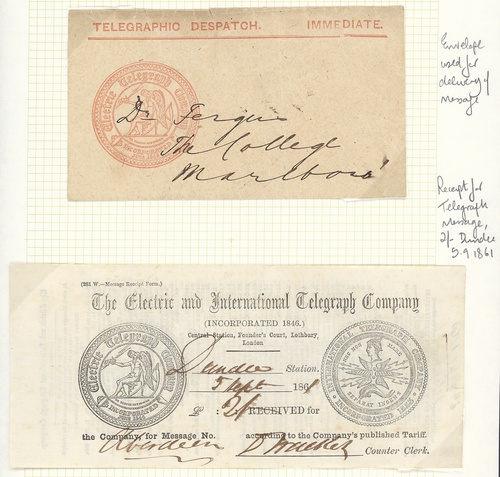 TELEGRAPHIC DESPATCH. IMMEDIATE.
Electric Telegraph Company
INCORPORATED 1846
Dr Fergus
The College
Marlboro'
Envelope
used for
delivery of
Message
Receipt for
Telegraph
Message,
2/- Dundee
5.9.1861
(261 W.—Message Receipt Form.)
The Electric and International Telegraph Company
(INCORPORATED 1846.)
Central Station, Founder's Court, Lothbury,
London
Electric Telegraph Company
INCORPORATED
INTERNATIONAL TELEGRAPH COMPANY
INCORPORATED
Dundee Station.
5 Sept 1861
£ : 2/ RECEIVED for
the Company, for Message No. according to the Company's published Tariff.
Aberdeen Counter Clerk.